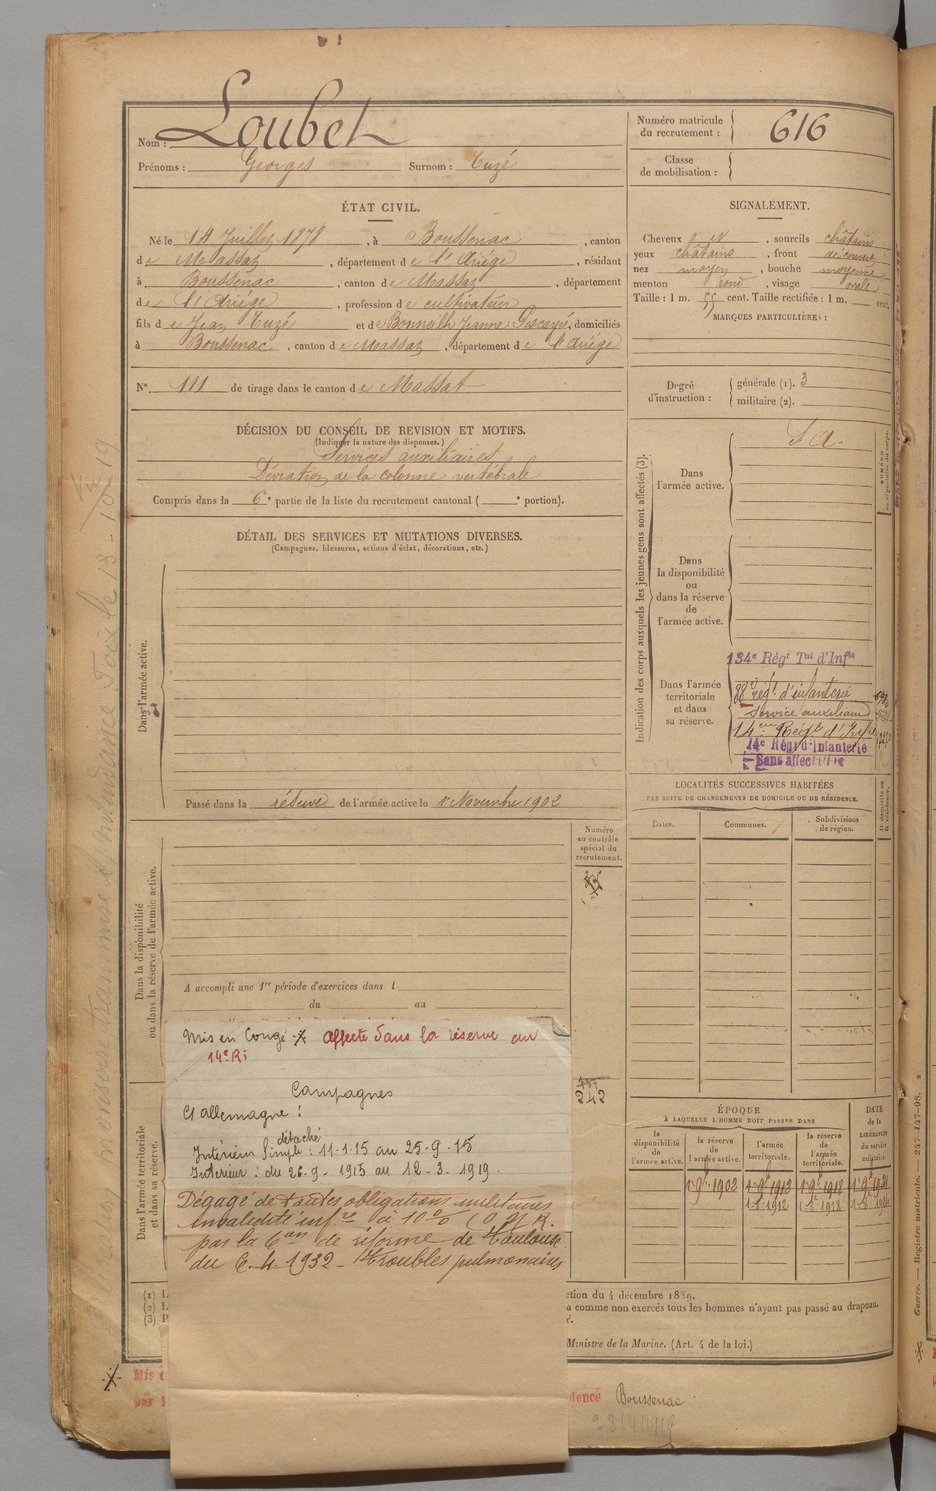 Nom : Loubet
Prénoms : Georges Surnom : Tuzé
ÉTAT CIVIL.
Né le 14 Juillet 1878, à Boussenac, canton
de Massat, département de l'Ariège, résidant
à Boussenac, canton de Massat, département
de l'Ariège, profession de cultivateur
fils de Jean Tuzé et de Bonneilh Jeanne, domiciliés
à Boussenac, canton de Massat, département de l'Ariège
N° 111 de tirage dans le canton de Massat
DÉCISION DU CONSEIL DE REVISION ET MOTIFS.
(Indiquer la nature des dispenses.)
Services auxiliaires
Déviation de la colonne vertébrale
Compris dans la 6e partie de la liste du recrutement cantonal ( e portion).
DÉTAIL DES SERVICES ET MUTATIONS DIVERSES.
(Campagnes, blessures, actions d'éclat, décorations, etc.)
Dans l'armée active.
Passé dans la réserve de l'armée active le 1er Novembre 1902
Numéro
au contrôle
spécial du
recrutement.
Dans la disponibilité
ou dans la réserve de l'armée active.
A accompli une 1re période d'exercices dans l
du au
Mis en Congé affecté dans la réserve au
14e Ri
Campagnes
Ct allemagne :
détaché
Intérieur Simple : 11-1-15 au 25-9-15
Intérieur : du 26-9-1915 au 12-3-1919.
242
Dans l'armée territoriale
et dans sa réserve.
Dégagé de toutes obligations militaires
invalidité infre à 10%
par la 6em de réforme de Toulouse
du 6-4-1932 - Troubles pulmonaires
(1) L
(2) L
(3) P
ction du 4 décembre 1889.
a comme non exercés tous les hommes n'ayant pas passé au drapeau.
Ministre de la Marine. (Art. 4 de la loi.)
Mis e
par l
dence Boussenac
Numéro matricule
du recrutement : 616
Classe
de mobilisation :
SIGNALEMENT.
Cheveux et, sourcils châtains
yeux châtains, front découvert
nez moyen, bouche moyenne
menton rond, visage ovale
Taille : 1 m. 55 cent. Taille rectifiée : 1 m. cent.
MARQUES PARTICULIÈRES :
Degré
d'instruction :
générale (1). 3
militaire (2).
Indication des corps auxquels les jeunes gens sont affectés (3).
Dans
l'armée active.
Dans
la disponibilité
ou
dans la réserve
de
l'armée active.
Dans l'armée
territoriale
et dans
sa réserve.
134e Régt Tal d'Infie
88e régt d'infanterie
Service auxiliaire
14eme Régt d'Infie
14e Régt d'Infanterie
Sans affectation
LOCALITÉS SUCCESSIVES HABITÉES
PAR SUITE DE CHANGEMENTS DE DOMICILE OU DE RÉSIDENCE.
Dates.
Communes.
Subdivisions
de région.
D. domicile ou
R. résidence.
ÉPOQUE
À LAQUELLE L'HOMME DOIT PASSER DANS
DATE
de la
LIBÉRATION
du service
militaire.
la
disponibilité
de
l'armée active.
la réserve
de
l'armée active.
l'armée
territoriale.
la réserve
de
l'armée
territoriale.
Guerre. — Registre matricule. — 247-147-98.